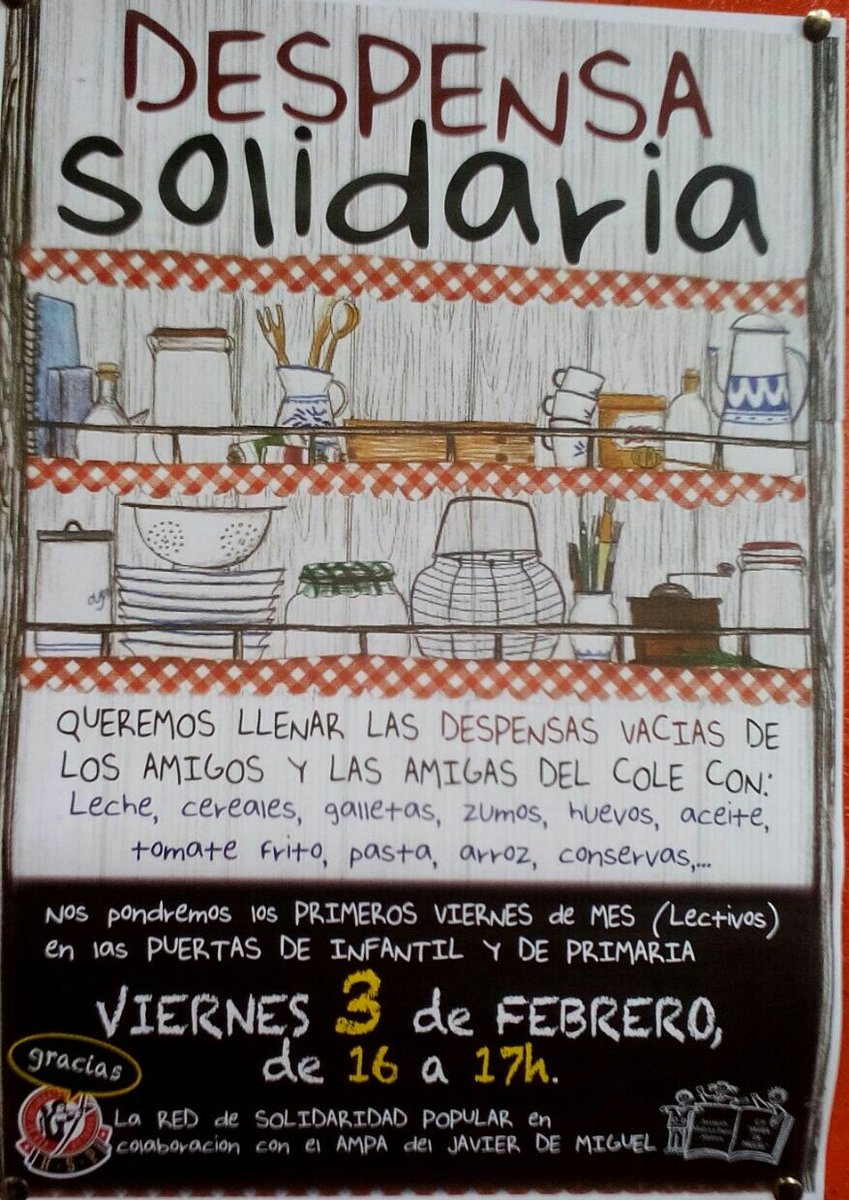 DESPENSA
solidaria
QUEREMOS LLENAR LAS DESPENSAS VACIAS DE
LOS AMIGOS Y LAS AMIGAS DEL COLE CON:
Leche, cereales, galletas, zumos, huevos, aceite,
tomate frito, pasta, arroz, conservas,...
Nos pondremos los PRIMEROS VIERNES de MES (Lectivos)
en las PUERTAS DE INFANTIL Y DE PRIMARIA
VIERNES 3 de FEBRERO,
de 16 a 17h.
gracias
La RED de SOLIDARIDAD POPULAR en
colaboracion con el AMPA del JAVIER DE MIGUEL